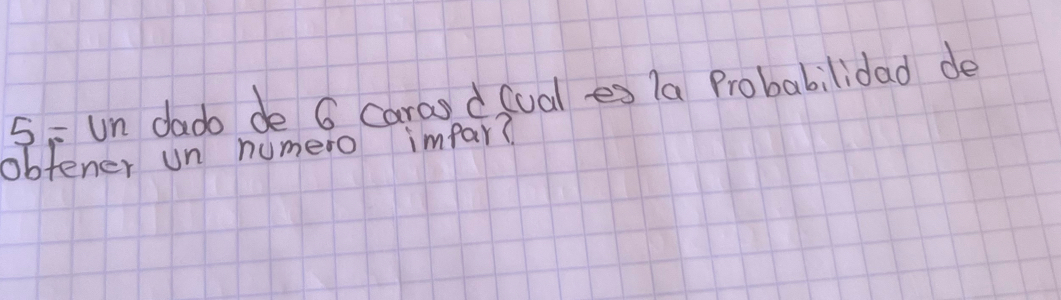 5.- un dado de 6 caras ¿Cual es la Probabilidad de
obtener un numero impar?